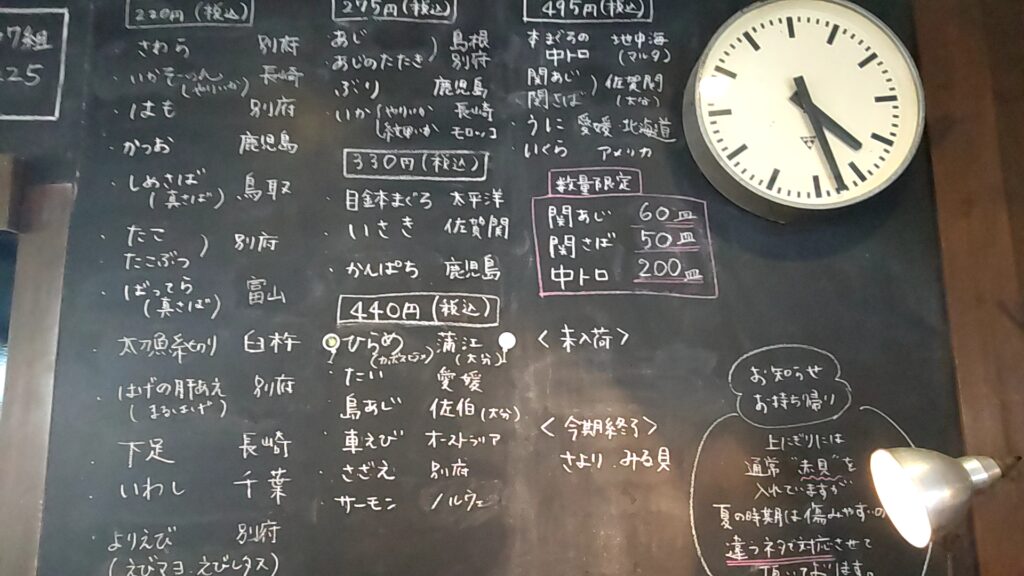 組
25
220円(税込)
さわら 別府
いかそーめん 長崎
(やりいか)
はも 別府
かつお 鹿児島
しめさば 鳥取
(真さば)
たこ 別府
たこぶつ
ばってら 富山
(真さば)
太刀魚糸切り 臼杵
はげの肝あえ 別府
(まるはげ)
下足 長崎
いわし 千葉
よりえび 別府
(えびマヨ.えびレタス)
275円(税込)
あじ 島根
あじのたたき 別府
ぶり 鹿児島
いか やりいか 長崎
紋甲いか モロッコ
330円(税込)
目鉢本まぐろ 太平洋
いさき 佐賀関
かんぱち 鹿児島
440円(税込)
ひらめ 蒲江
(カボスヒラメ) (大分)
たい 愛媛
島あじ 佐伯(大分)
車えび オーストラリア
さざえ 別府
サーモン ノルウェー
495円(税込)
本まぐろの 地中海
中トロ (マルタ)
関あじ 佐賀関
関さば (大分)
うに 愛媛 北海道
いくら アメリカ
数量限定
関あじ 60皿
関さば 50皿
中トロ 200皿
<未入荷>
<今期終了>
さより.みる貝
お知らせ
お持ち帰り
上にぎりには
通常"赤貝"を
入れていますが
夏の時期は傷みやすいの
違うネタで対応させて
頂いております。